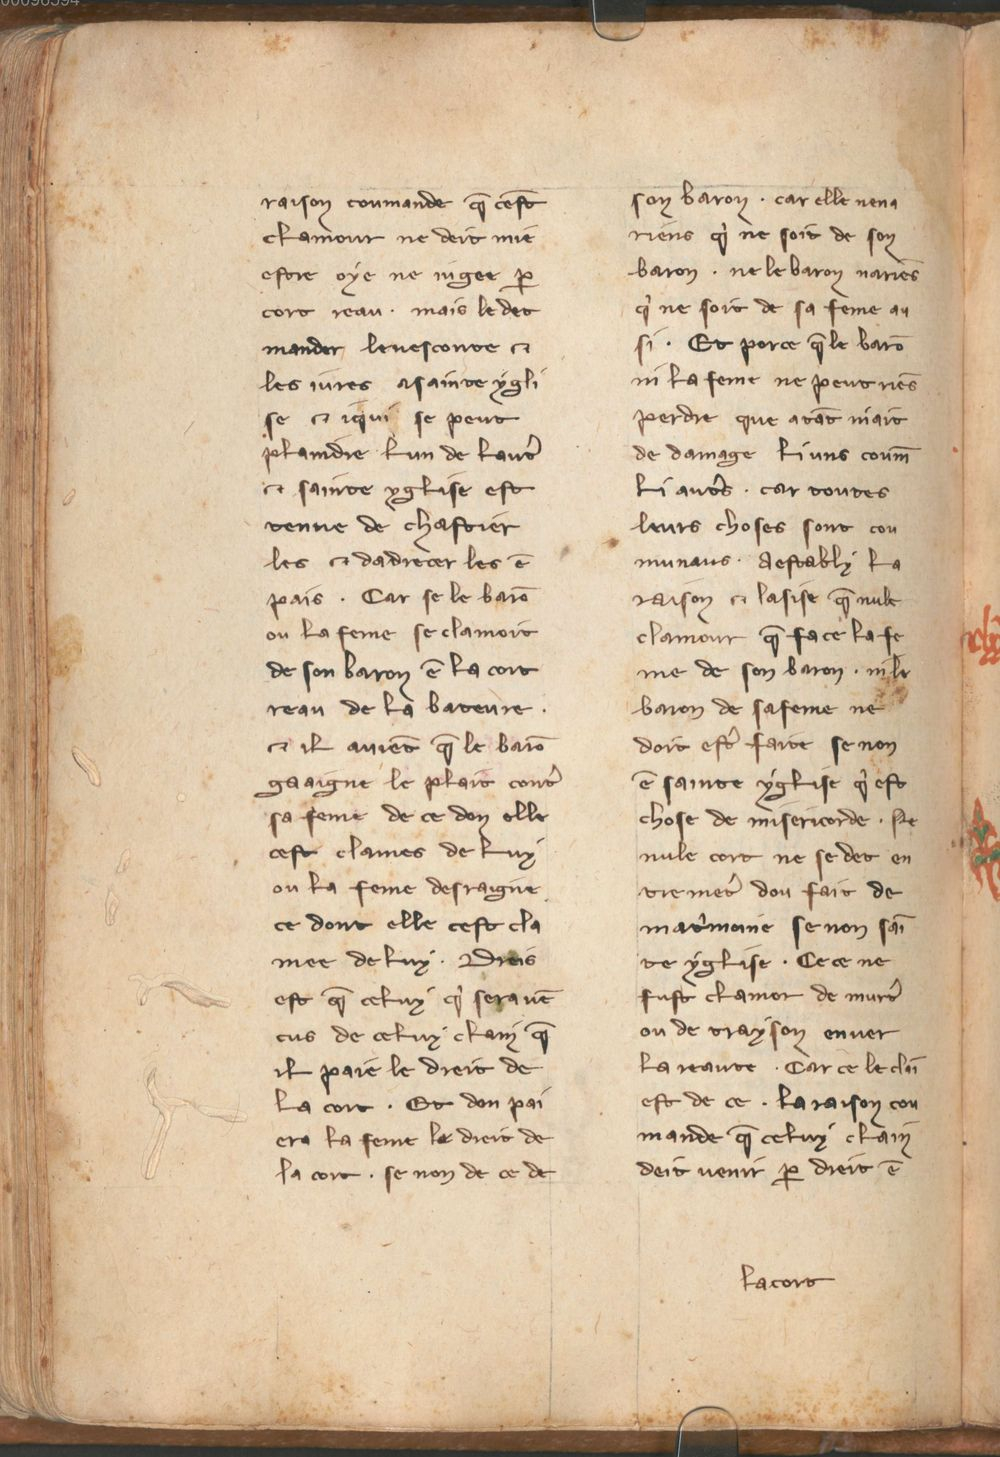 raison coumande q̄ ceſt
clamour ne deit mie
eſtre oýe ne iugee ꝑ
cort reau · mais le det
mander levesconte ⁊
les iures asainte ýgli
se ⁊ iqui se peut
plaindre lun de lautr̾
⁊ sainte yglise eſt
tenue de chaſtier
les ⁊ dadrecer les ē
pais · Car se le barō
ou la feme se clamoit
de son baron ē la cort
reau de la bateure ·
⁊ il auiēt q̄ le barō
gaaigne le plait contr̾
sa feme de ce don elle
ceſt clames de luy
ou la feme desraigne
ce dont elle ceſt cla
mee de luy · Dreis
eſt q̄ celuy q̾ sera uē
cus de celuy claim q̄
il paie le dreit de
la cort · Et don pai
era la feme le dreit de
la cort · se non de ce de
son baron · car elle nena
riens q̾ ne soit de son
baron · ne le baron nariēs
q̾ ne soit de sa feme au
si · Et porce q̄ le barō
ni la feme ne peut riēs
perdre que atāt niait
de damage li uns coum̄
li autr̾s · car toutes
leurs choses sont cou
munaus · Aeſtably la
raison ⁊ lasise q̄ nule
clamour q̄ face la fe
me de son baron · ni le
baron de safeme ne
doit eſtr̾ faite se non
ē sainte ýglise q̾ eſt
chose de misericorde · Ne
nule cort ne se det en
tremetr̾ dou fait de
mar̾moine se non saī
te ýglise · Cece ne
fuſt clamor de murtr̾
ou de trayson enuer
la reaute · Car ce le claī
eſt de ce · la raison cou
mande q̄ celuy claim
deit uenir ꝑ dreit ē
lacort